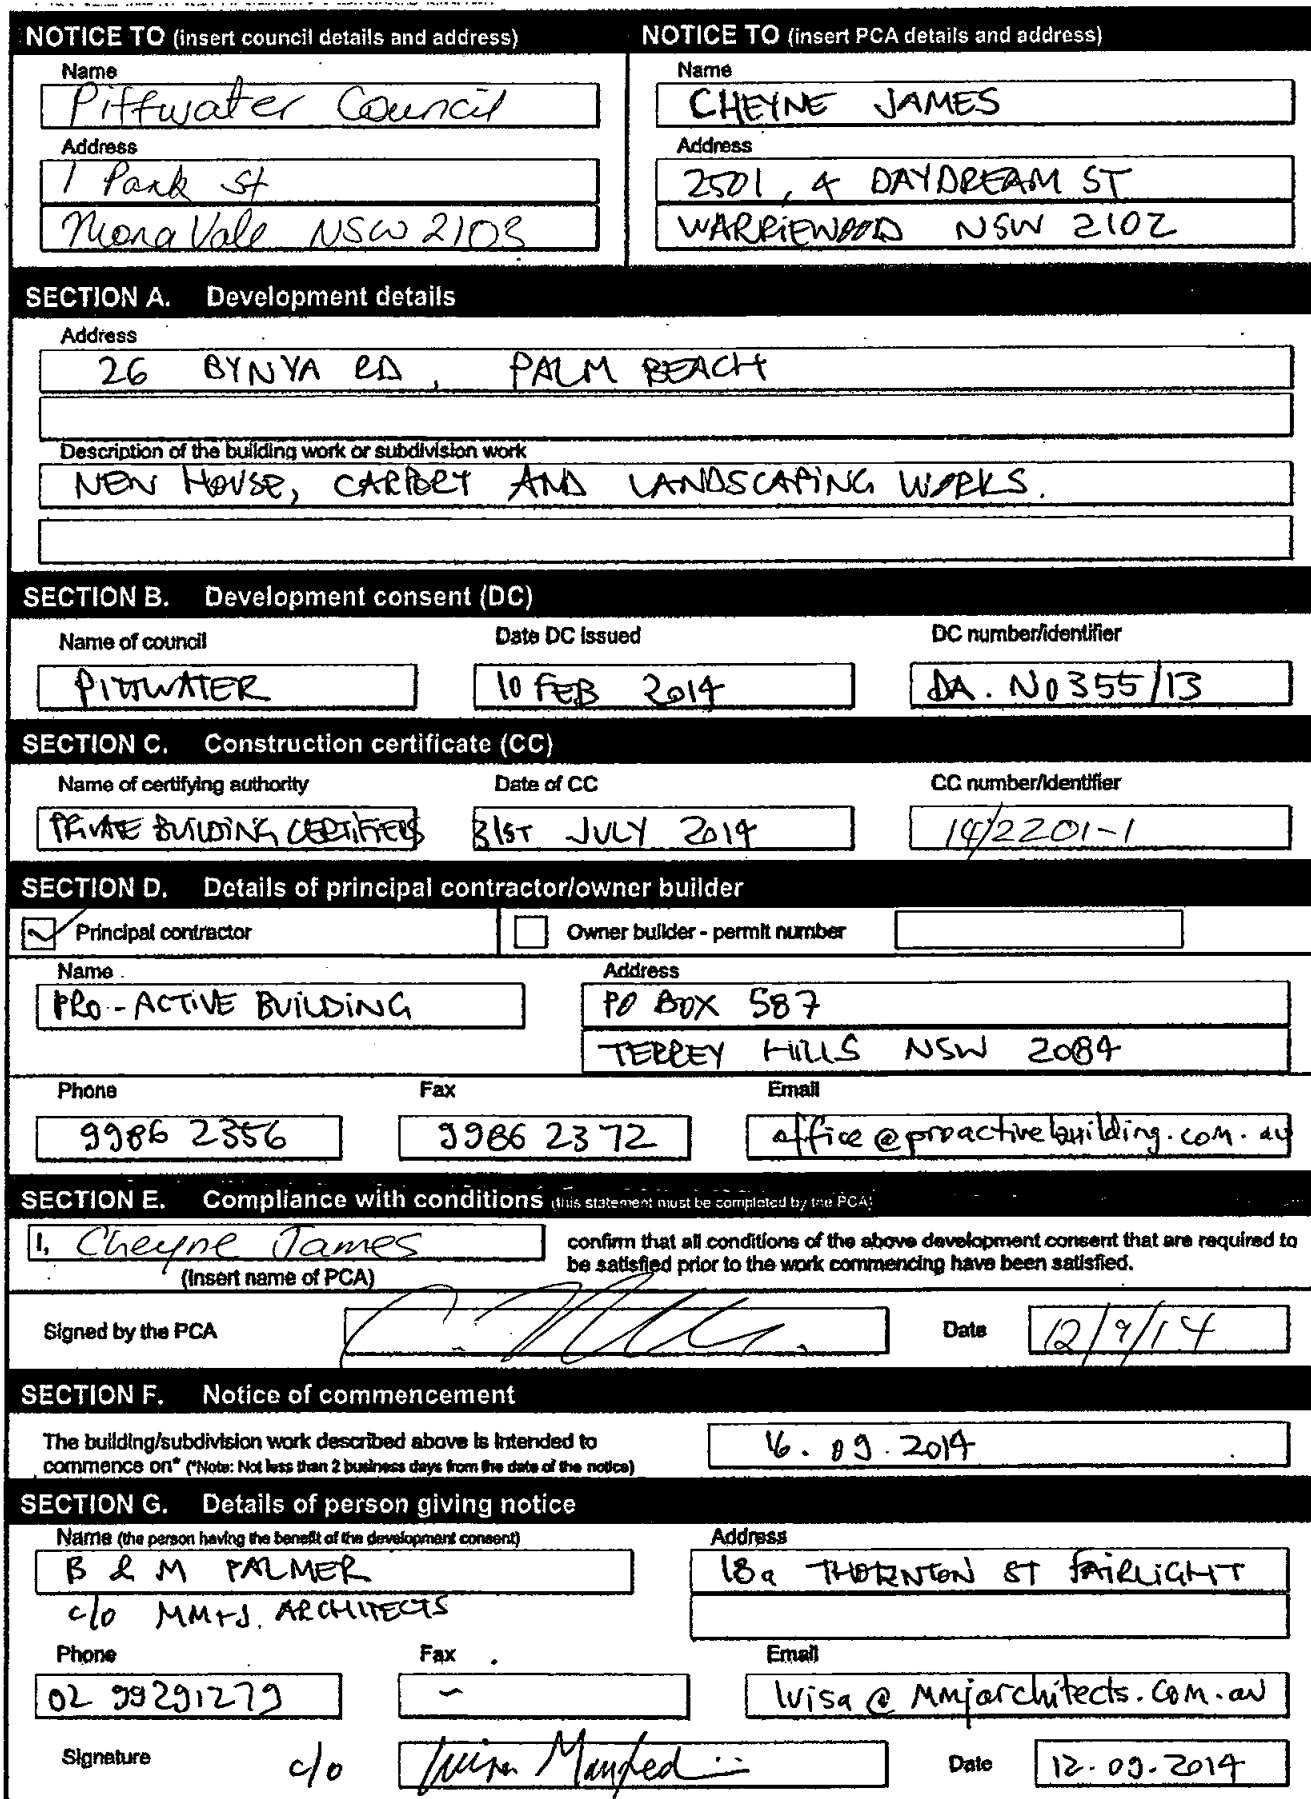 NOTICE TO (insert council details and address)
Name
Pittwater Council
Address
1 Park St
Mona Vale NSW 2103
NOTICE TO (insert PCA details and address)
Name
CHEYNE JAMES
Address
2501, 4 DAYDREAM ST
WARRIEWOOD NSW 2102
SECTION A. Development details
Address
26 BYNYA RD, PALM BEACH
Description of the building work or subdivision work
NEW HOUSE, CARPORT AND LANDSCAPING WORKS.
SECTION B. Development consent (DC)
Name of council Date DC issued DC number/identifier
PITTWATER 10 FEB 2014 DA. NO355/13
SECTION C. Construction certificate (CC)
Name of certifying authority Date of CC CC number/identifier
PRIVATE BUILDING CERTIFIERS 31ST JULY 2014 14/2201-1
SECTION D. Details of principal contractor/owner builder
Principal contractor Owner builder - permit number
Name Address
PRO-ACTIVE BUILDING PO BOX 587
TERREY HILLS NSW 2084
Phone Fax Email
9986 2356 9986 2372 office@proactivebuilding.com.au
SECTION E. Compliance with conditions (this statement must be completed by the PCA)
I, Cheyne James confirm that all conditions of the above development consent that are required to
(insert name of PCA) be satisfied prior to the work commencing have been satisfied.
Signed by the PCA Date 12/9/14
SECTION F. Notice of commencement
The building/subdivision work described above is intended to 16.09.2014
commence on* (*Note: Not less than 2 business days from the date of the notice)
SECTION G. Details of person giving notice
Name (the person having the benefit of the development consent) Address
B & M PALMER 18a THORNTON ST FAIRLIGHT
c/o MM+J. ARCHITECTS
Phone Fax Email
02 99291279 - luisa@mmjarchitects.com.au
Signature c/o Date 12.09.2014